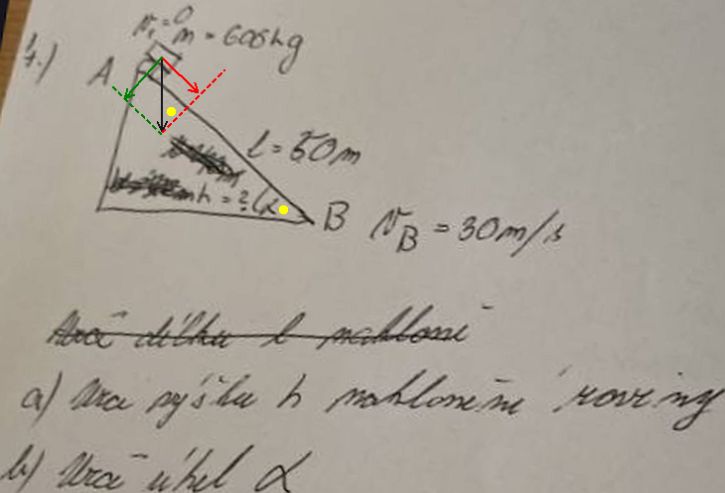 1.)
v₁ = 0
m = 600 kg
A
l = 50 m
h = ?
α
B
v_B = 30 m/s
Urči délku l nakloně
a) Urči výšku h nakloněné roviny
b) Urči úhel α